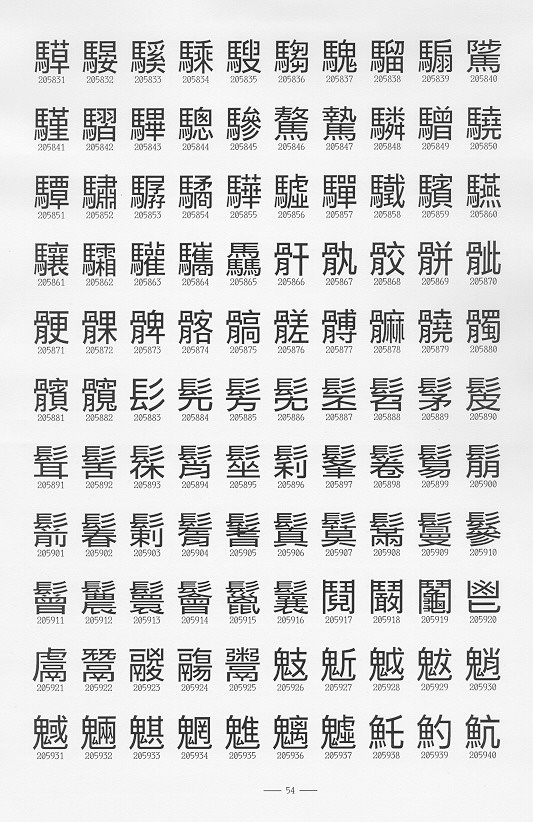 騲 騴 騱 騪 騶 騩 騮 騸 騭
205831 205832 205833 205834 205835 205836 205837 205838 205839 205840
騽 驆 驄 驂 驁 騺 驎 驍
205841 205842 205843 205844 205845 205846 205847 205848 205849 205850
驔 驌 驏 驈 驊 驉 驒 驖 驞 驠
205851 205852 205853 205854 205855 205856 205857 205858 205859 205860
驤 驩 驨 驫 骭 骩 骿 骴
205861 205862 205863 205864 205865 205866 205867 205868 205869 205870
骾 髁 髀 髂 髇 髊 髆 髍 髐 髑
205871 205872 205873 205874 205875 205876 205877 205878 205879 205880
髕 髖 髟 髡 髣 髧 髫 髳 髲
205881 205882 205883 205884 205885 205886 205887 205888 205889 205890
髶 髺 髽 鬈 鬄 鬅
205891 205892 205893 205894 205895 205896 205897 205898 205899 205900
鬋 鬊 鬎 鬐 鬒 鬖
205901 205902 205903 205904 205905 205906 205907 205908 205909 205910
鬙 鬞 鬟 鬠 鬣 鬤 鬩 鬫 鬮 鬯
205911 205912 205913 205914 205915 205916 205917 205918 205919 205920
鬳 鬵 鬷 鬺 鬻 鬾 鬿 魆 魃 魈
205921 205922 205923 205924 205925 205926 205927 205928 205929 205930
魊 魎 魌 魍 魋 魑 魖 魠 魡 魧
205931 205932 205933 205934 205935 205936 205937 205938 205939 205940
— 54 —